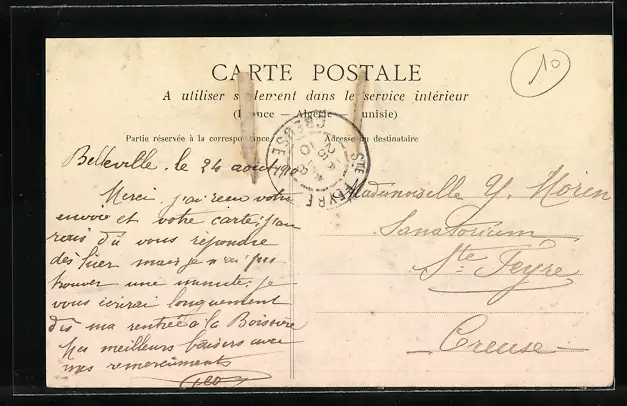 10
CARTE POSTALE
A utiliser seulement dans le service intérieur
(France — Algérie — Tunisie)
Partie réservée à la correspondance
Adresse du destinataire
STE FEYRE
CREUSE
25
10
Belleville, le 24 août 1910
Merci j'ai reçu votre
envoie et votre carte, j'au
rais dû vous répondre
dès hier mais je n'ai pu
trouver une minute. je
vous écrirai longuement
dès ma rentrée à la Boissière
Mes meilleurs baisers avec
mes remerciements
Mademoiselle Y. Morin
Sanatorium
Ste Feyre
Creuse